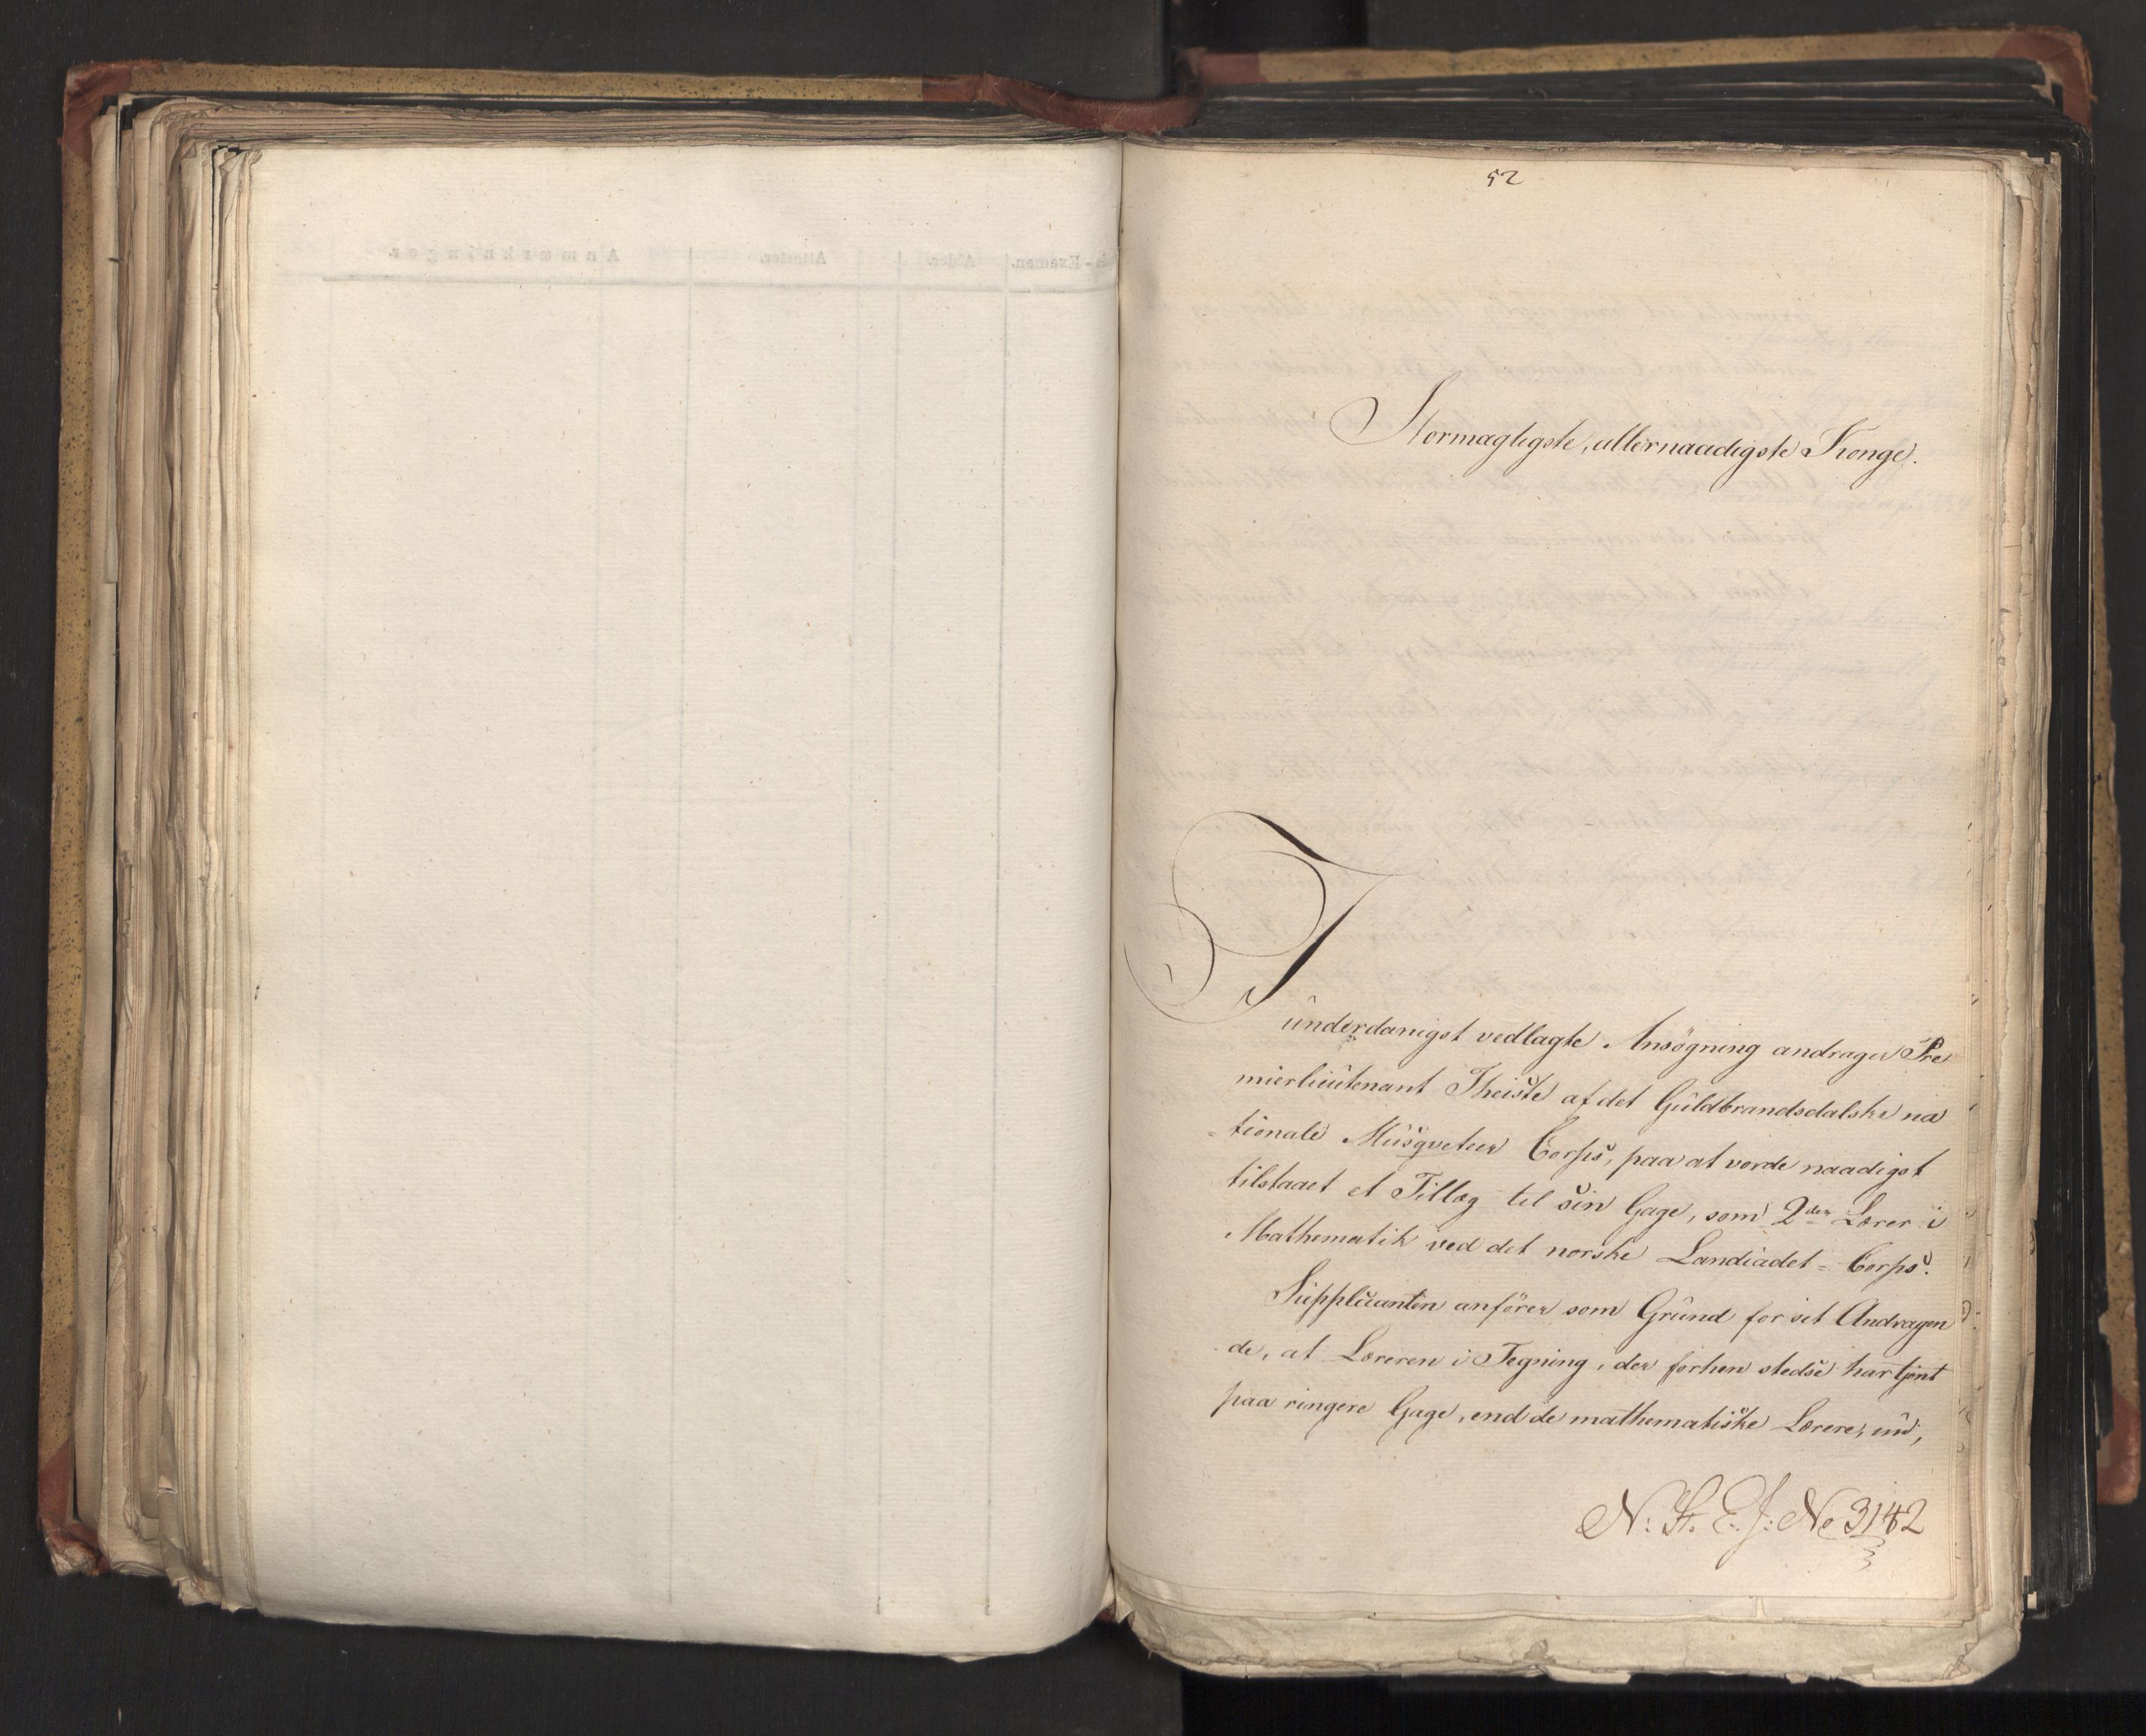 52
Stormægtigste, allernaadigste Konge.
I
underdanigst vedlagte Ansögning andrager Pre
mierlieutenant Theiste af det Guldbrandsdalske na
-tionale Musqveteer Corps, paa at vorde naadigst
tilstaaet et Tillæg til sin Gage, som 2den Lærer i
Mathematik ved det norske Landcadet-Corps.
Supplicanten anförer som Grund for sit Andragen
de, at Læreren i Tegning, der forhen stedse har tjent
paa ringere Gage, end de mathematiske Lærere, nu,
N: St. E. J: No 3142
3